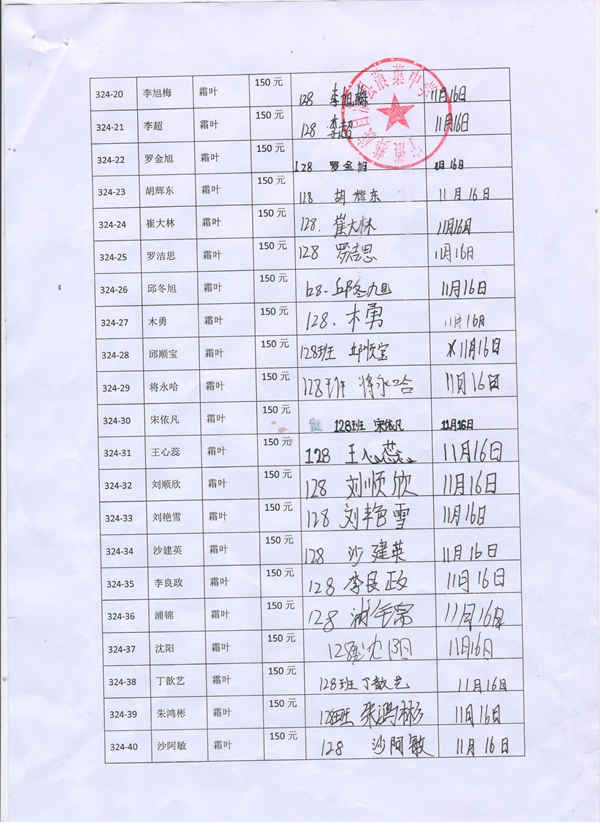 324-20 李旭梅 霜叶 150 元 128 李旭梅 11月16日
324-21 李超 霜叶 150 元 128 李超 11月16日
324-22 罗金旭 霜叶 150 元 128 罗金旭 11月16日
324-23 胡辉东 霜叶 150 元 118 胡辉东 11月16日
324-24 崔大林 霜叶 150 元 128. 崔大林 11月16日
324-25 罗洁思 霜叶 150 元 128 罗洁思 11月16日
324-26 邱冬旭 霜叶 150 元 128. 邱冬旭 11月16日
324-27 木勇 霜叶 150 元 128. 木勇 11月16日
324-28 邱顺宝 霜叶 150 元 128班 邱顺宝 11月16日
324-29 将永哈 霜叶 150 元 128班 将永哈 11月16日
324-30 宋依凡 霜叶 150 元 128班 宋依凡 11月16日
324-31 王心蕊 霜叶 150 元 128 王心蕊 11月16日
324-32 刘顺欣 霜叶 150 元 128 刘顺欣 11月16日
324-33 刘艳雪 霜叶 150 元 128 刘艳雪 11月16日
324-34 沙建英 霜叶 150 元 128 沙建英 11月16日
324-35 李良政 霜叶 150 元 128 李良政 11月16日
324-36 浦锦 霜叶 150 元 128 浦锦 11月16日
324-37 沈阳 霜叶 150 元 128 沈阳 11月16日
324-38 丁歆艺 霜叶 150 元 128班 丁歆艺 11月16日
324-39 朱鸿彬 霜叶 150 元 128班 朱鸿彬 11月16日
324-40 沙阿敏 霜叶 150 元 128 沙阿敏 11月16日